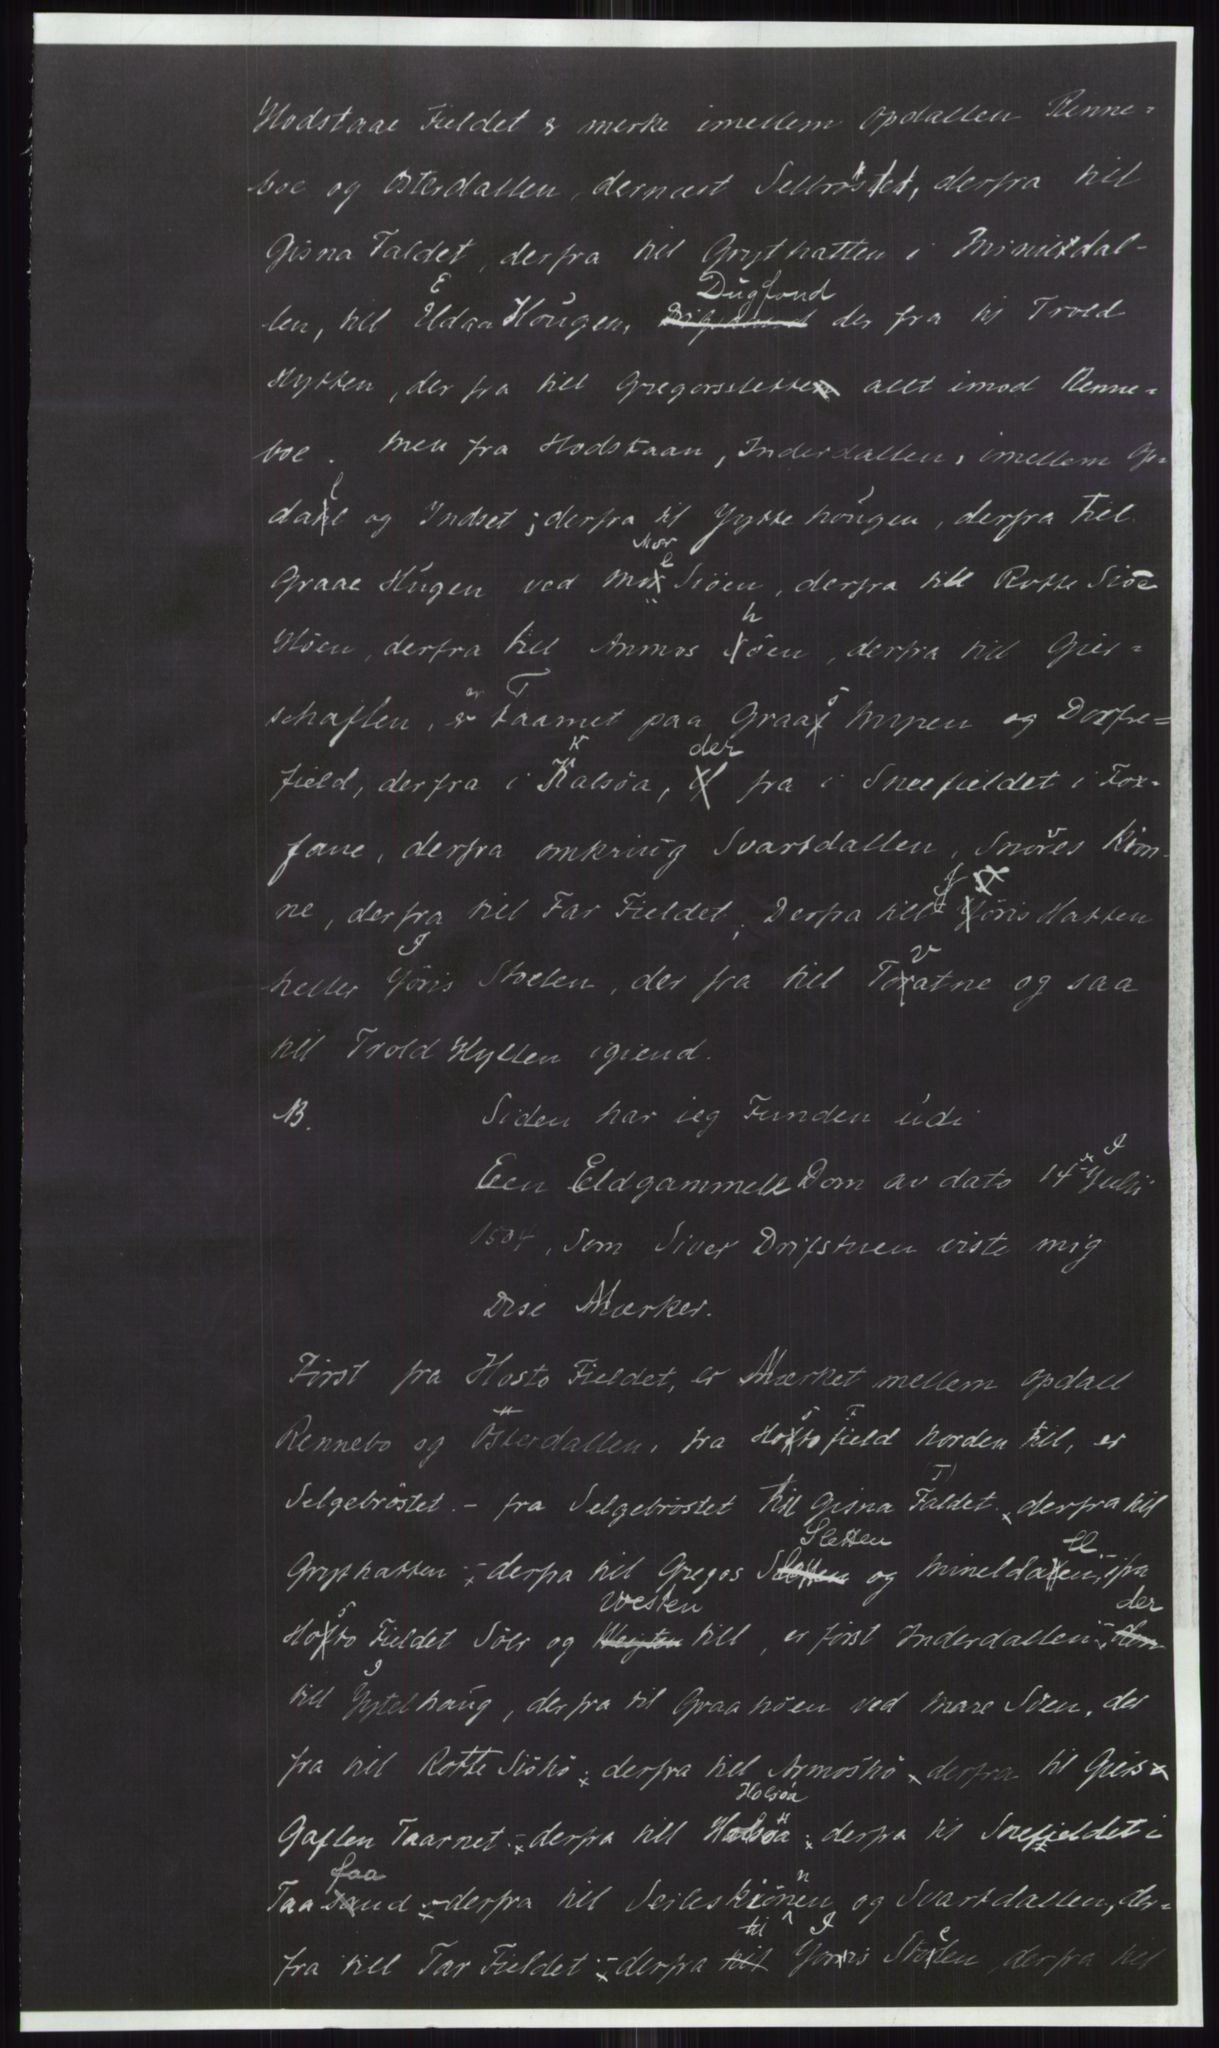 Hodstaae Fieldet er merke imellem Opdallen Renne-
boe og Østerdallen, dernæst Selbröstet, derfra till
Gisna Faldet, derfra till Grythatten i Mimildal-
len, till Eldaa Höugen, Dugfond der fra til Trold
Hytten, der fra till Gregersslette allt imod Renne-
boe. Men fra Hodstaan, Inderdallen, imellem Op-
dall og Indset; derfra til Jytte höugen, derfra till
Graae Hügen ved Mor Siöen, derfra till Rotte Siöe
Höen, derfra till Anmos höen, derfra till Gier-
schaflen, er Taarnet paa Graas hupen og Dovre-
field, derfra i Kalsöa, der fra i Sneefieldet i Fox-
fone, derfra omkring Svartdallen, Snöves Kiön-
ne, derfra till Far Fieldet, Derfra till Jöris Hatten
heller Jöris Stoelen, der fra till Tovatne og saa
till Trold Hytten igiend.
NB. Siden har ieg Funden udi
Een Eldgammell Dom av dato 14de Julii
1504, Som Siver Drifstuen viste mig
Dise Mærker.
First fra Hosto Fieldet, er Mærket mellem Opdall
Rennebo og Österdallen, fra Hosto field Norden till, er
Selgebröstet - fra Selgebröstet till Gisna Faldet, derfra till
Grythatten - derfra till Gregos Sletten og Mineldallen, ifra
Hosto Fieldet Söer og Westen till, er först Inderdallen - der
till Jytelhaug, derfra til Graa höen ved Mare Söen, der
fra till Rotte Siöhö, derfra till Armoshö, derfra til Gieis
Gaflen Taarnet - derfra till Holsöa, derfra til Snefieldet i
Taa faa - derfra till Seileskiönen og Svartdallen, der-
fra till Far Fieldet - derfra til Joris Stoelen, derfra till